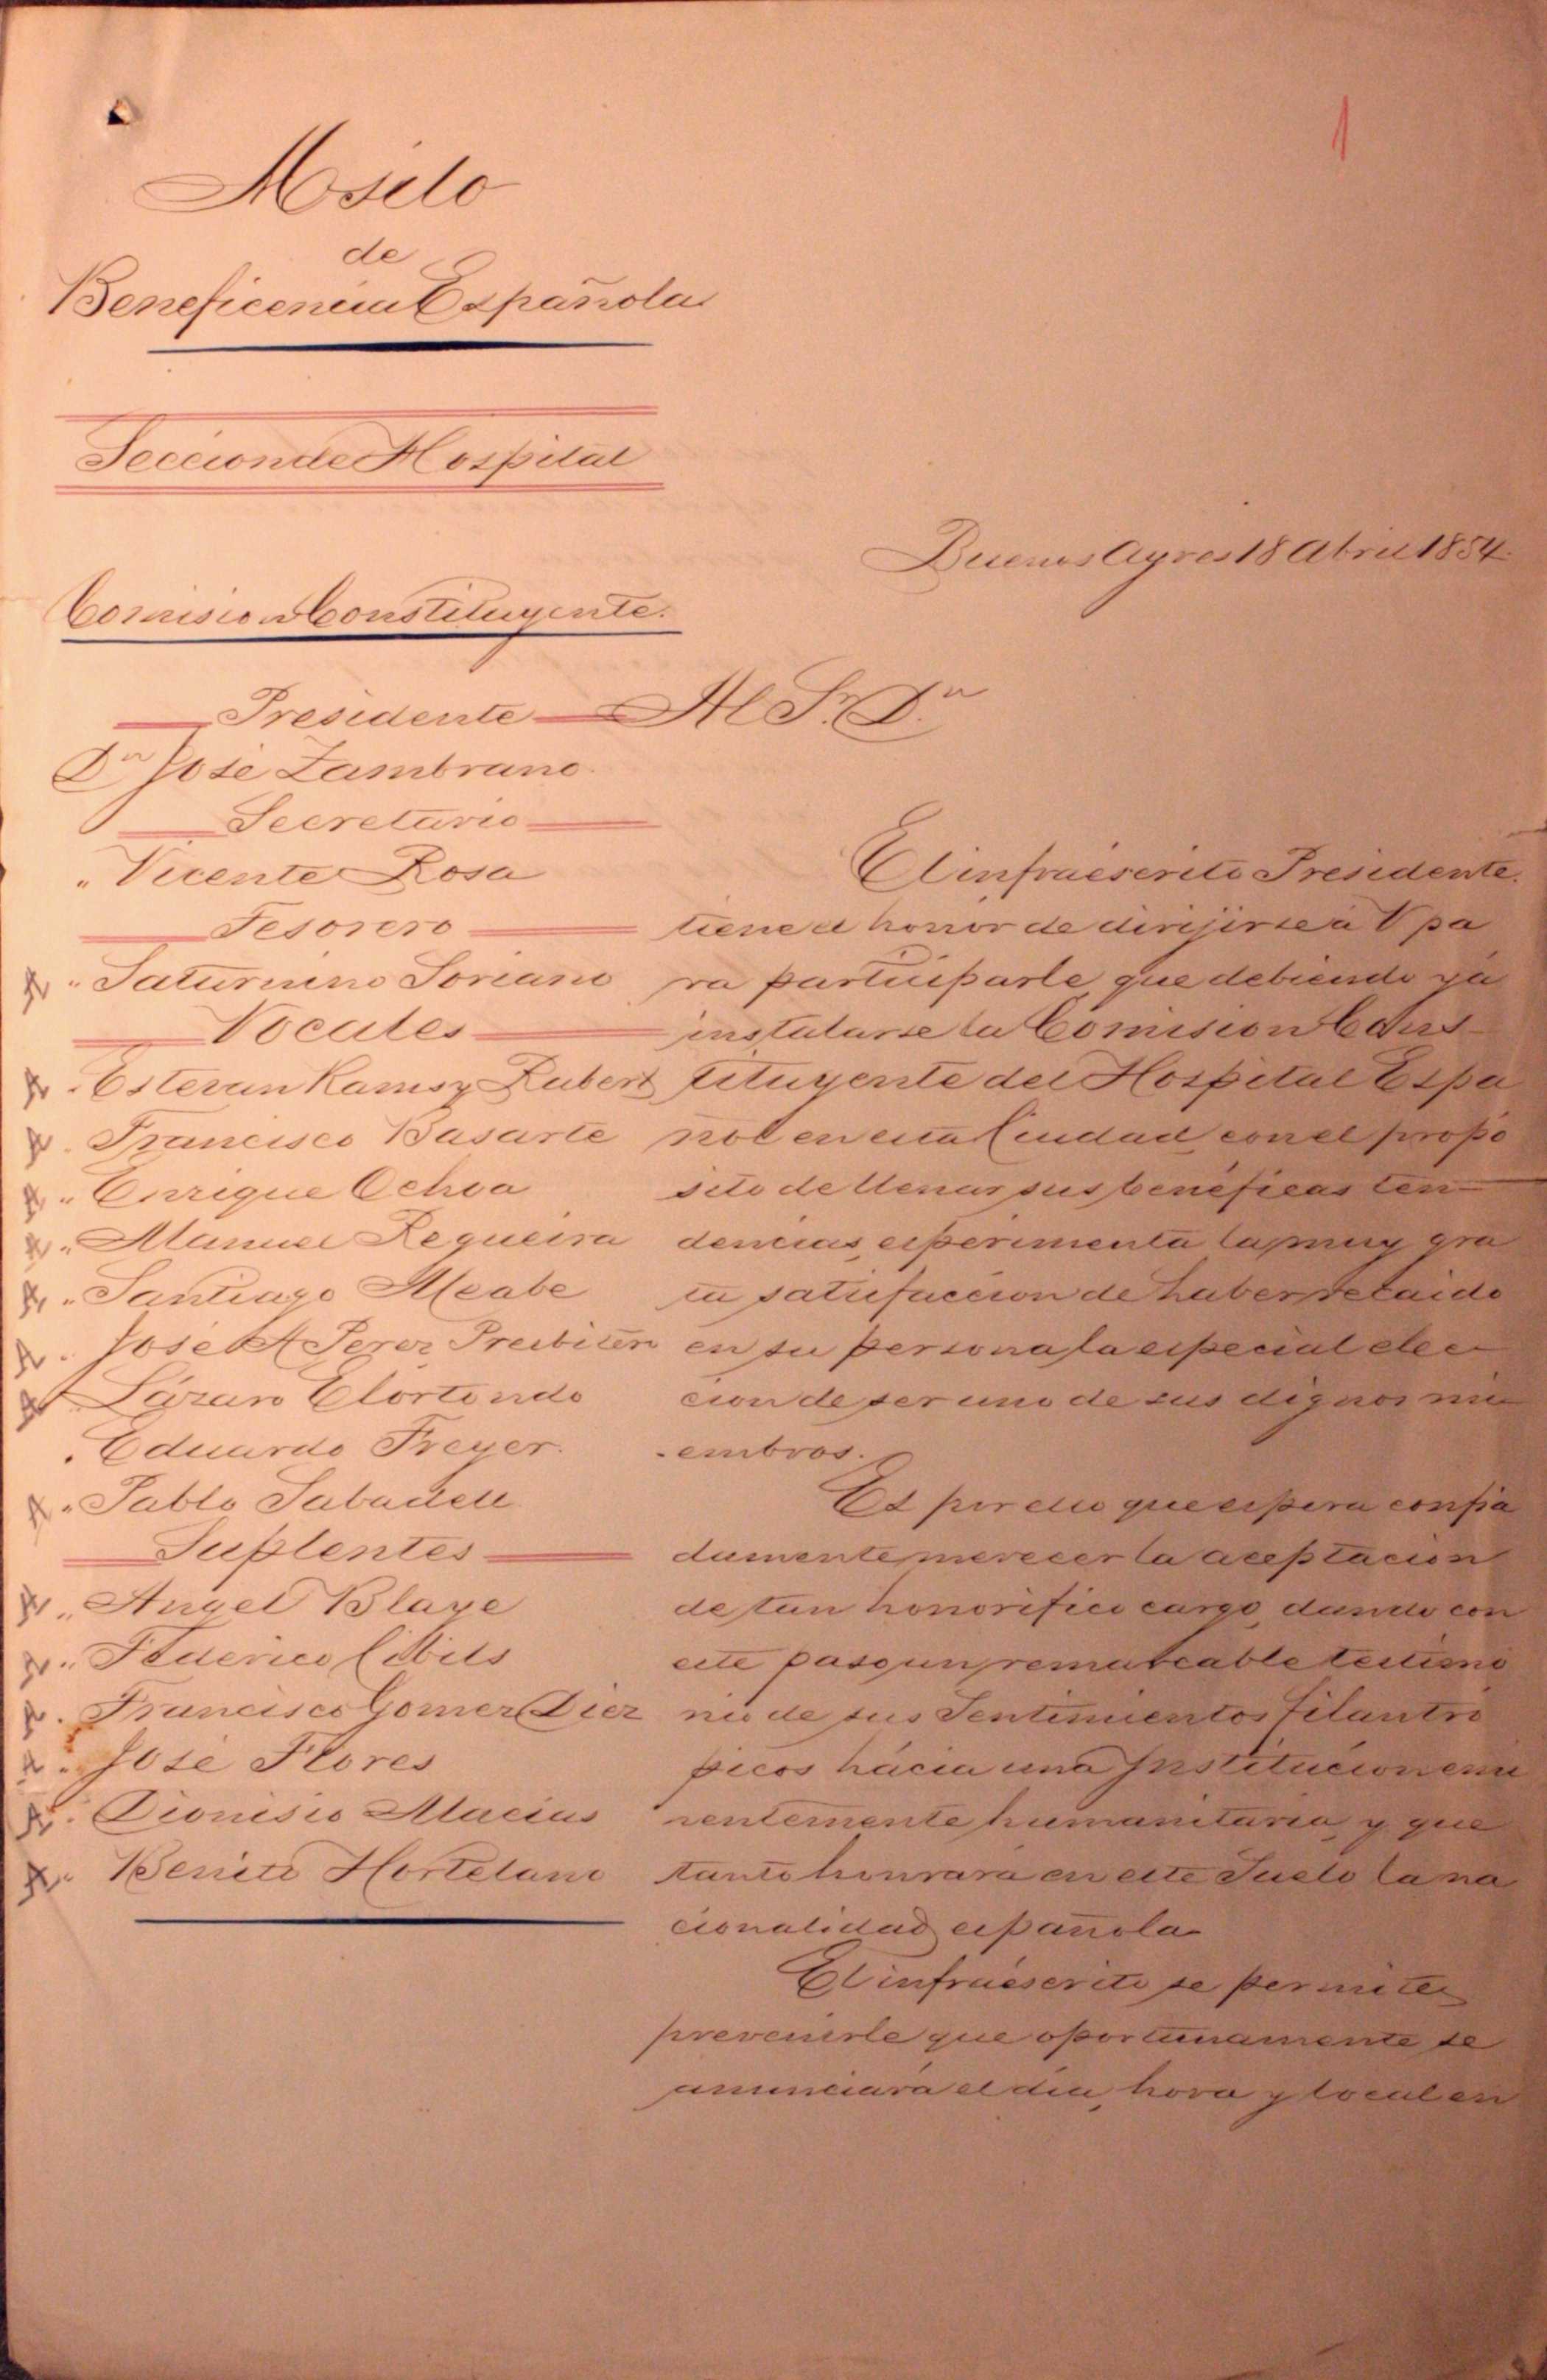 1
Asilo
de
Beneficencia Española
Seccion de Hospital
Comision Constituyente.
Presidente
Dn José Zambrano
Secretario
" Vicente Rosa
Tesorero
" Saturnino Soriano
Vocales
" Estevan Rams y Rubert
" Francisco Basarte
" Enrique Ochoa
" Manuel Regueira
" Santiago Meabe
" José A Perez Presbitero
" Lázaro Elortondo
" Eduardo Freyer.
" Pablo Sabadell
Suplentes
" Angel Blaye
" Federico Cibils
" Francisco Gomez Diez
" José Flores
" Dionisio Macias
" Benito Hortelano
Buenos Ayres 18 Abril 1854.
Al Sr. Dn
El infraéscrito Presidente.
tiene el honór de dirijirse á V pa
ra participarle, que debiendo yá
instalarse la Comision Cons-
tituyente del Hospital Espa
ñol en esta Ciudad, con el propó
sito de llenar sus benéficas ten-
dencias, esperimenta la muy gra
ta satisfaccion de haber recaido
en su persona la especial elec-
cion de ser uno de sus dignos mi-
embros.
Es por ello que espera confia
damente, merecer la aceptacion
de tan honorifico cargo, dando con
este paso, un remarcable testimo
nio de sus Sentimientos filantró
picos hácia una Institucion emi
nentemente humanitaria, y que
tanto honrará en este Suelo la na
cionalidad española
El infraéscrito se permite
prevenirle que oportunamente se
anunciará el dia, hora y local en